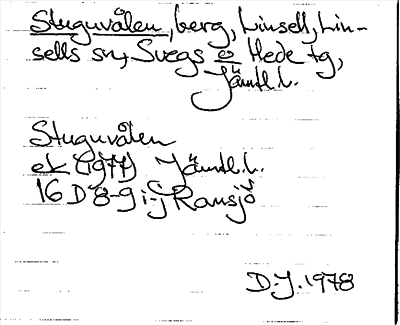 Stuguvålen, berg, Linsell, Lin-
sells sn, Svegs o Hede tg,
Jämtl.l.
Stuguvålen
ek (1977) Jämtl.l.
16 D 8-9 i-j Ransjö
D.J. 1978